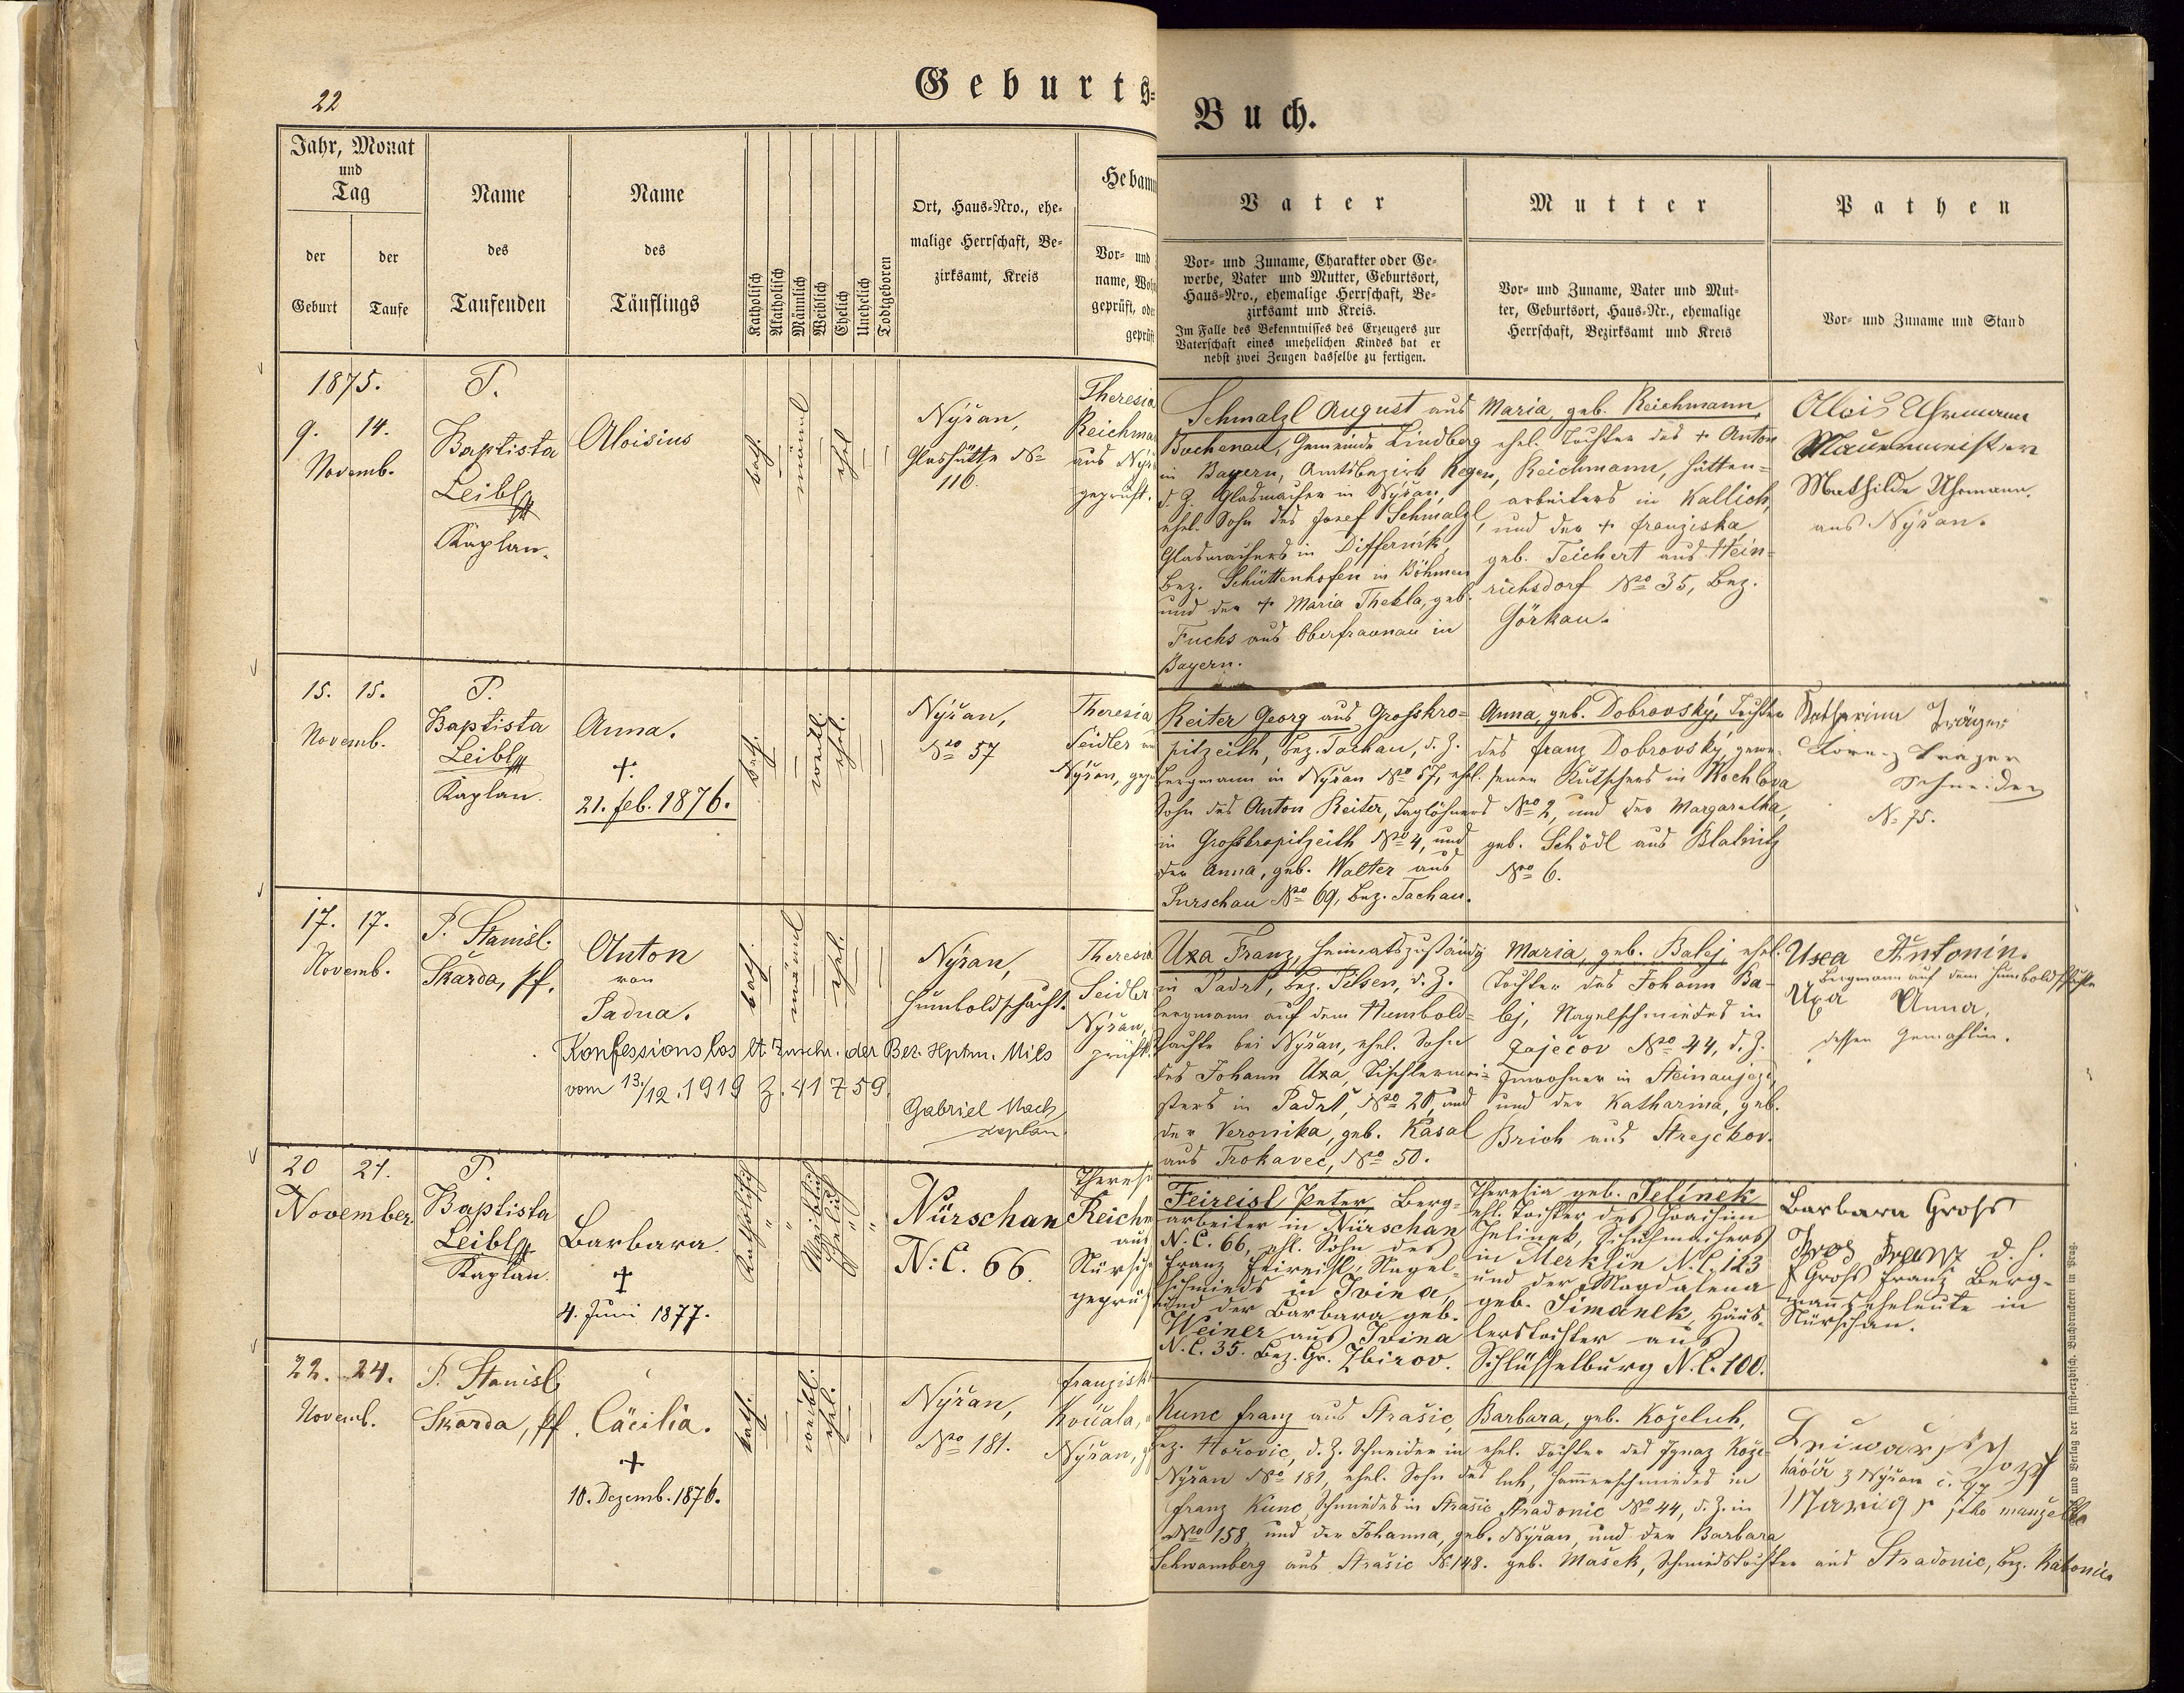 22
Geburts-
Buch.
Jahr, Monat
und
Tag
der
Geburt
der
Taufe
Name
des
Taufenden
Name
des
Täuflings
Katholisch
Akatholisch
Männlich
Weiblich
Ehelich
Unehelich
Todtgeboren
Ort, Haus-Nro., ehe-
malige Herrschaft, Be-
zirksamt, Kreis
Hebam
Vor- und
name, Woh
geprüft, oder
geprüft
Vater
Vor- und Zuname, Charakter oder Ge-
werbe, Vater und Mutter, Geburtsort,
Haus-Nro., ehemalige Herrschaft, Be-
zirksamt und Kreis.
Im Falle des Bekenntnisses des Erzeugers zur
Vaterschaft eines unehelichen Kindes hat er
nebst zwei Zeugen dasselbe zu fertigen.
Mutter
Vor- und Zuname, Vater und Mut-
ter, Geburtsort, Haus-Nr., ehemalige
Herrschaft, Bezirksamt und Kreis
Pathen
Vor- und Zuname und Stand
1875.
9. 14.
Novemb.
P.
Baptista
Leibl
Kaplan.
Aloisius
kath.
männl
ehel
Nýřan,
Glashütte No
116.
Theresia
Reichma
aus Nýř
geprüft.
Schmalzl August aus
Buchenau, Gemeinde Lindberg
in Bayern, Amtsbezirk Regen,
d. Z. Glasmacher in Nýřan,
ehel. Sohn des Josef Schmalzl,
Glasmachers in Differnik,
Bez. Schüttenhofen in Böhmen
und der + Maria Thekla, geb.
Fuchs aus Oberfraunau in
Bayern.
Maria, geb. Reichmann,
ehel. Tochter des + Anton
Reichmann, Hütten-
arbeiters in Kallich,
und der + Franziska
geb. Teichert aus Hein-
richsdorf Nro 35, Bez.
Görkau.
Alois Uhrmann
Mauermeister
Mathilde Uhrmann.
aus Nýřan.
15. 15.
Novemb.
P.
Baptista
Leibl
Kaplan.
Anna.
+
21. Feb. 1876.
kath.
weibl.
ehel.
Nýřan,
Nro 57
Theresia
Seidler
Nýřan, gepr
Reiter Georg aus Grosskro-
pitzeith, Bez. Tachau, d. Z.
Bergmann in Nýřan Nro 57, ehel.
Sohn des Anton Reiter, Taglöhners
in Grosskropitzeith Nro 4, und
der Anna, geb. Walter aus
Purschau Nro 69, Bez. Tachau.
Anna, geb. Dobrovský, Tochter
des Franz Dobrovský, gewe-
senen Kutschers in Kochlova
Nro 2, und der Margaretha,
geb. Schödl aus Blatnitz
Nro 6.
Katharina Träger
Lorenz Trager
Schneider
N. 75.
17. 17.
Novemb.
P. Stanisl.
Škarda, Pf.
Anton
von
Padua.
kath.
männl
ehel.
Nýřan,
Humboldschacht.
Theresia
Seidler
Nýřan,
prüft.
Konfessionslos lt. Zuschr. der Bez. Hptm. Mies
vom 13./12. 1919 Z. 41759.
Gabriel Mach
Kaplan.
Uxa Franz, heimatszuständig
in Padrt, Bez. Pilsen, d. Z.
Bergmann auf dem Humbold-
schachte bei Nýřan, ehel. Sohn
des Johann Uxa, Tischlermei-
sters in Padrt, Nro 20, und
der Veronika, geb. Kasal
aus Trokavec, Nro 50.
Maria, geb. Balej, ehel.
Tochter des Johann Ba-
lej, Nagelschmiedes in
Zaječov Nro 44, d. Z.
Inwohner in Steinaujezd,
und der Katharina, geb.
Brich aus Strejčkov.
Uxa Antonín.
Bergmann auf dem Humboldschachte
Uxa Anna,
dessen Gemahlin.
20 21.
November
P.
Baptista
Leibl
Kaplan.
Barbara.
+
4. Juni 1877.
Katholisch
Weiblich
Ehelich
Nürschan
N: C. 66.
Theresi
Reichm
aus
Nürsch
geprüf
Feireisl Peter Berg-
arbeiter in Nürschan
N. C. 66, ehl. Sohn des
Franz Feireisl, Nagel-
schmieds in Ivina,
und der Barbara geb.
Weiner aus Ivina
N. C. 35. Bez. Gr. Zbirov.
Theresia geb. Jelínek
ehl. Tochter des Joachim
Jelinek, Schuhmachers
in Merklin N. C. 123
und der Magdalena
geb. Šimánek, Häus-
lerstochter aus
Schlüsselburg N. C. 100.
Barbara Gross
Gros Franz d. h.
Gross Franz Berg-
mannseheleute in
Nürschan.
22. 24.
Novemb.
P. Stanisl
Škarda, Pf.
Cäcilia.
+
10. Dezemb. 1876.
kath.
weibl.
ehel.
Nýřan,
Nro 181.
Franzisk
Koúcala,
Nýřan,
Kunc Franz aus Strašic,
Bez. Hořovic, d. Z. Schneider in
Nýřan Nro 181, ehel. Sohn des
Franz Kunc, Schmiedes in Strašic
Nro 158, und der Johanna, geb.
Schwamberg aus Strašic N. 148.
Barbara, geb. Koželuh,
ehel. Tochter des Ignaz Kože-
luh, Hammerschmiedes in
Stradonic Nro 44, d. Z. in
Nýřan, und der Barbara
geb. Mašek, Schmiedstochter aus Stradonic, Bez. Rakonic.
havíř z Nýřan č. 97
jeho manželka
und Verlag der fürsterzbisch. Buchdruckerei in Prag.